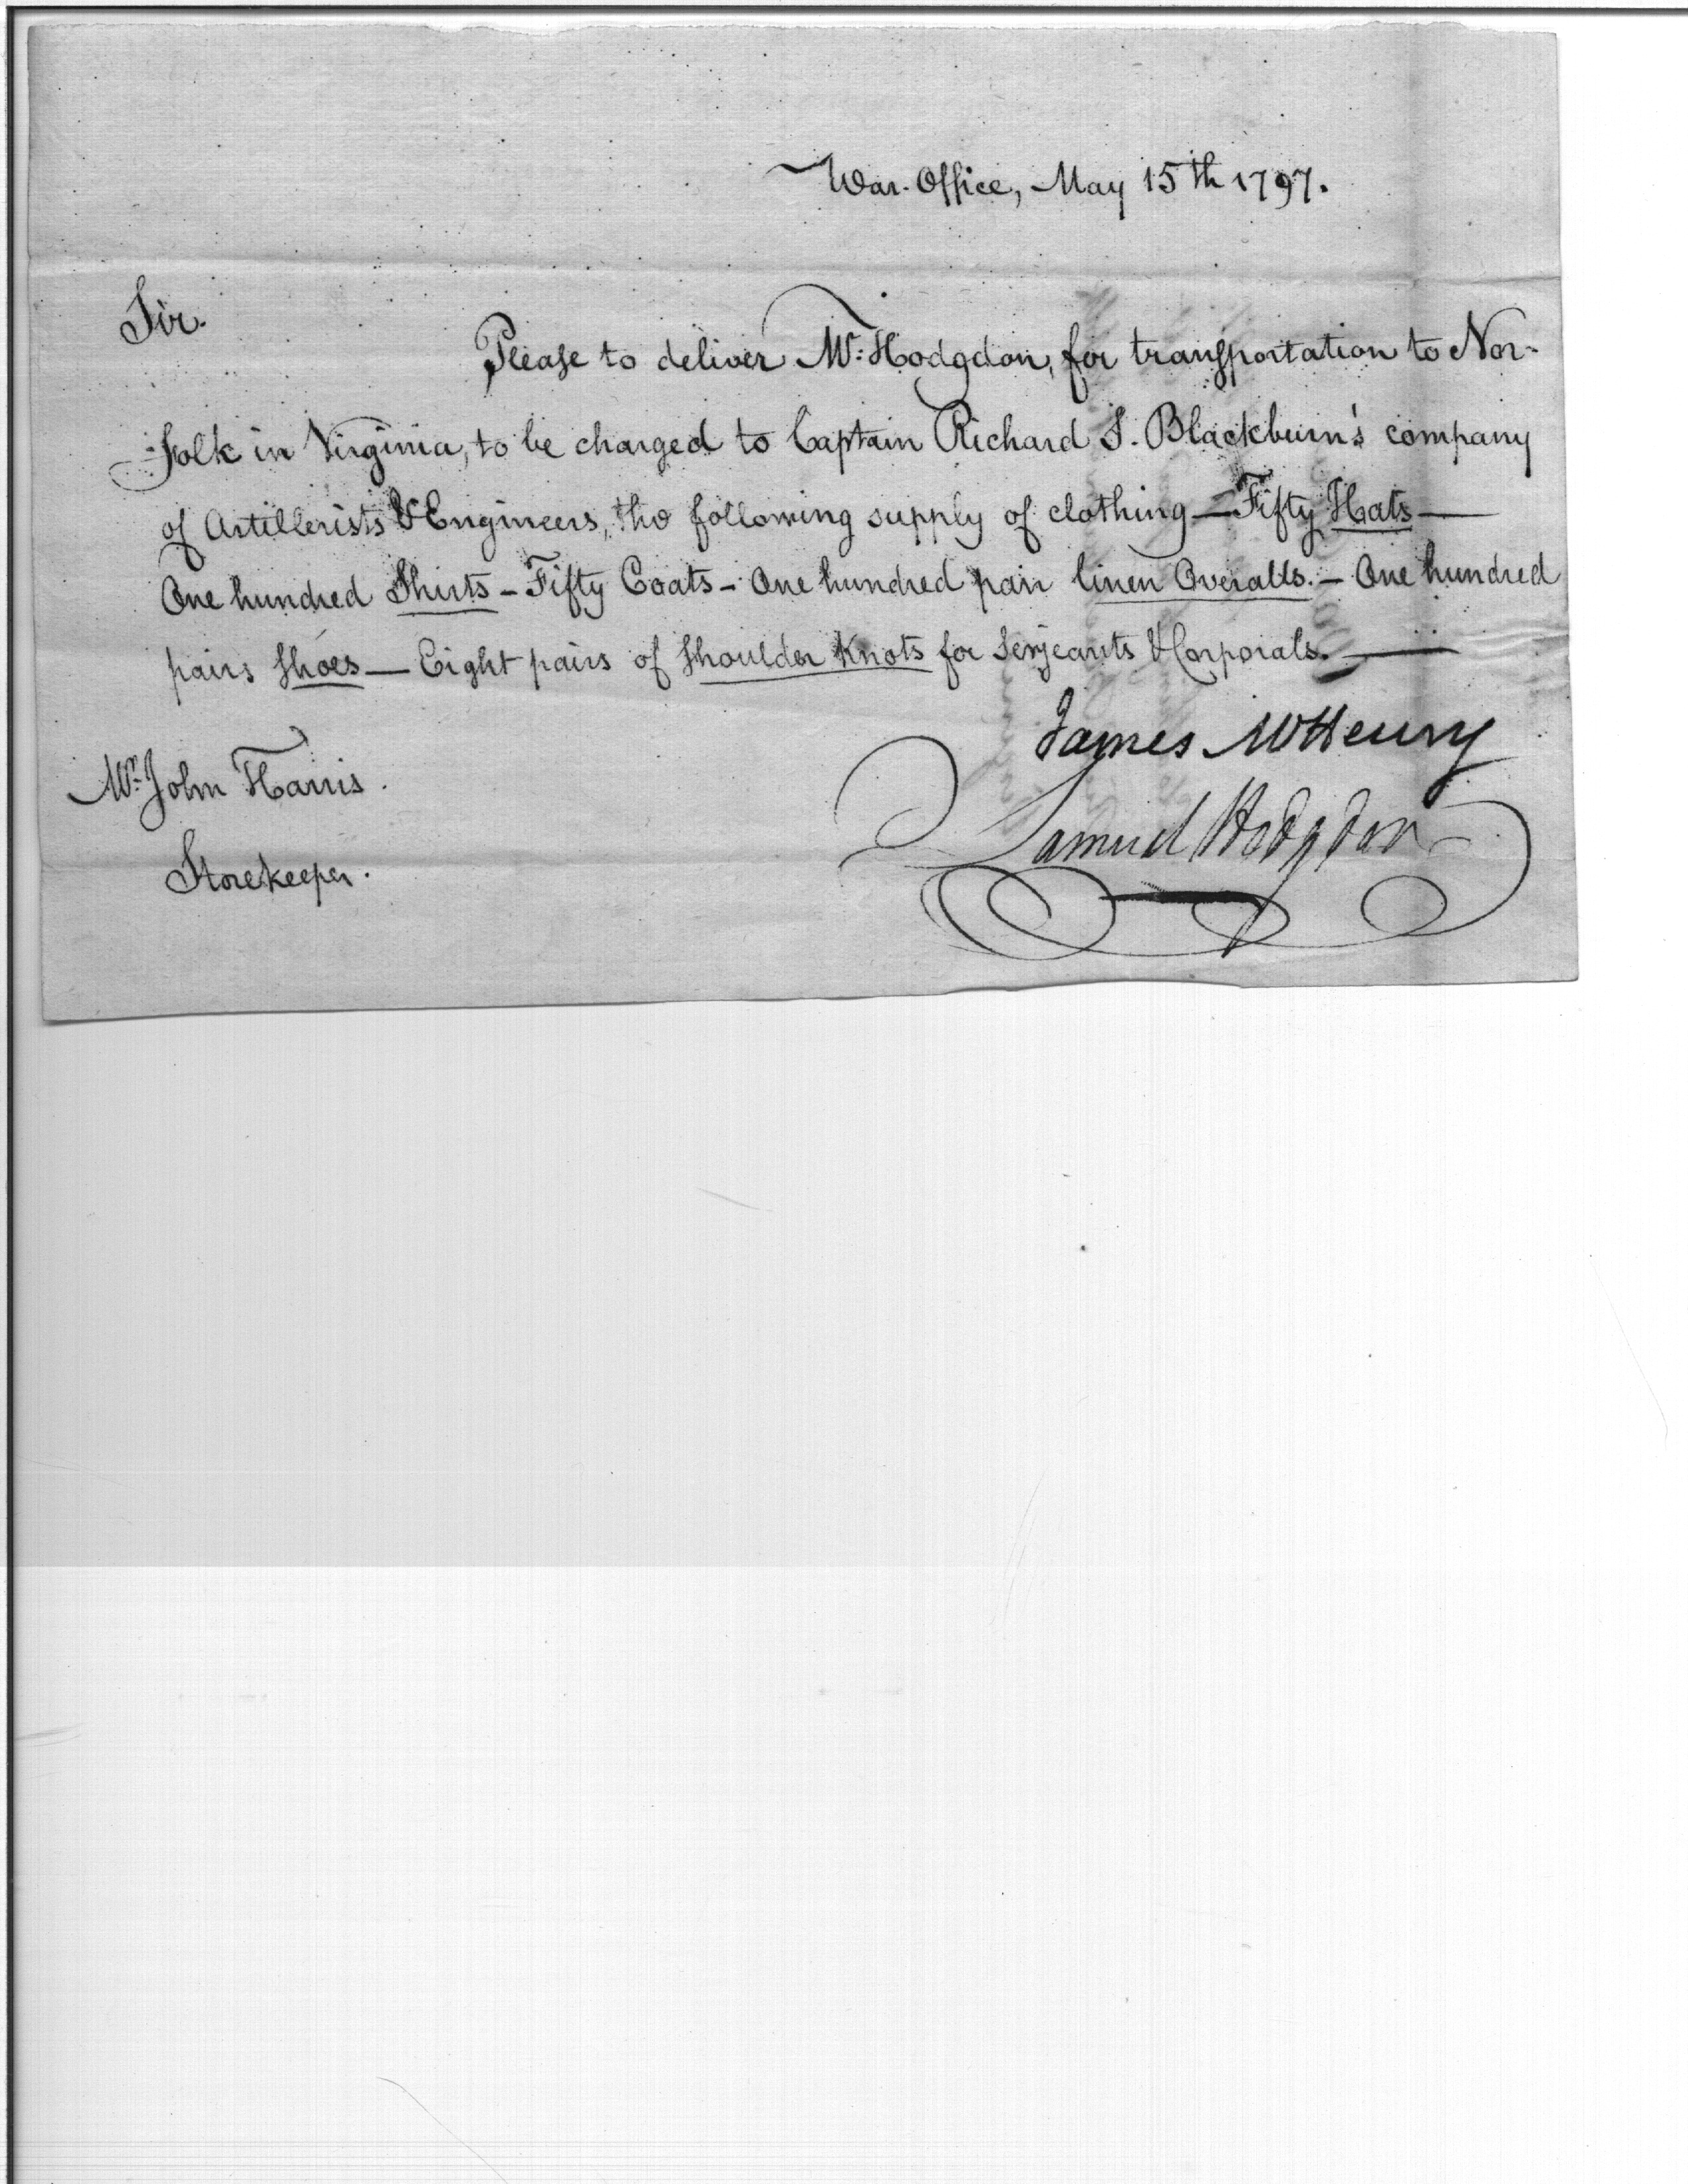 War-Office, May 15th 1797.
Sir.
Please to deliver Mr. Hodgdon, for transportation to Nor-
-folk in Virginia, to be charged to Captain Richard S. Blackburn's company
of Artillerists & Engineers, the following supply of clothing — Fifty Hats —
One hundred Shirts - Fifty Coats - One hundred pair linen Overalls. - One hundred
pairs Shoes — Eight pairs of Shoulder Knots for Serjeants & Corporals. —
James McHenry
Mr. John Harris.
Samuel Hodgdon
Storekeeper.